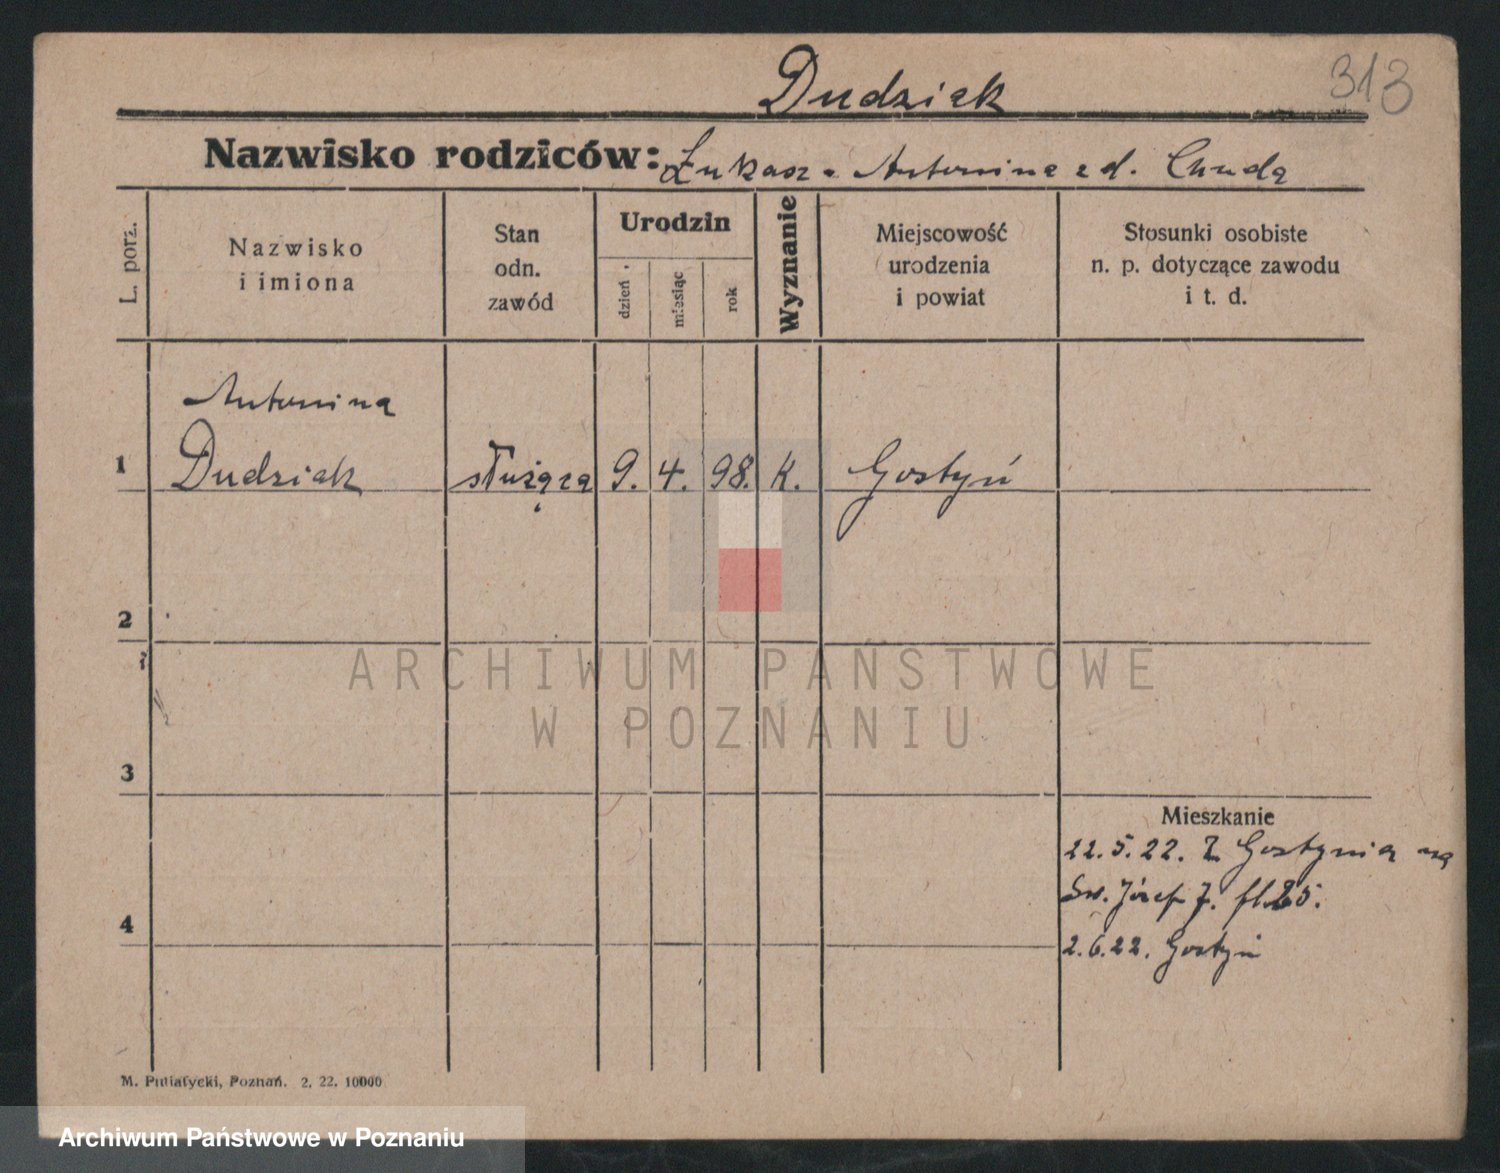 Dudziak
313
Nazwisko rodziców: Łukasz - Antonina z d. Chuda
L. porz.
Nazwisko
i imiona
Stan
odn.
zawód
Urodzin
dzień
miesiąc
rok
Wyznanie
Miejscowość
urodzenia
i powiat
Stosunki osobiste
n. p. dotyczące zawodu
i t. d.
Antonina
1 Dudziak służąca 9. 4. 98. K. Gostyń
2
ARCHIWUM PAŃSTWOWE
W POZNANIU
3
Mieszkanie
22.5.22. Z Gostynia na
Św. Józef 7.
4
2.6.22. Gostyń
M. Putiatycki, Poznań. 2. 22. 10000
Archiwum Państwowe w Poznaniu